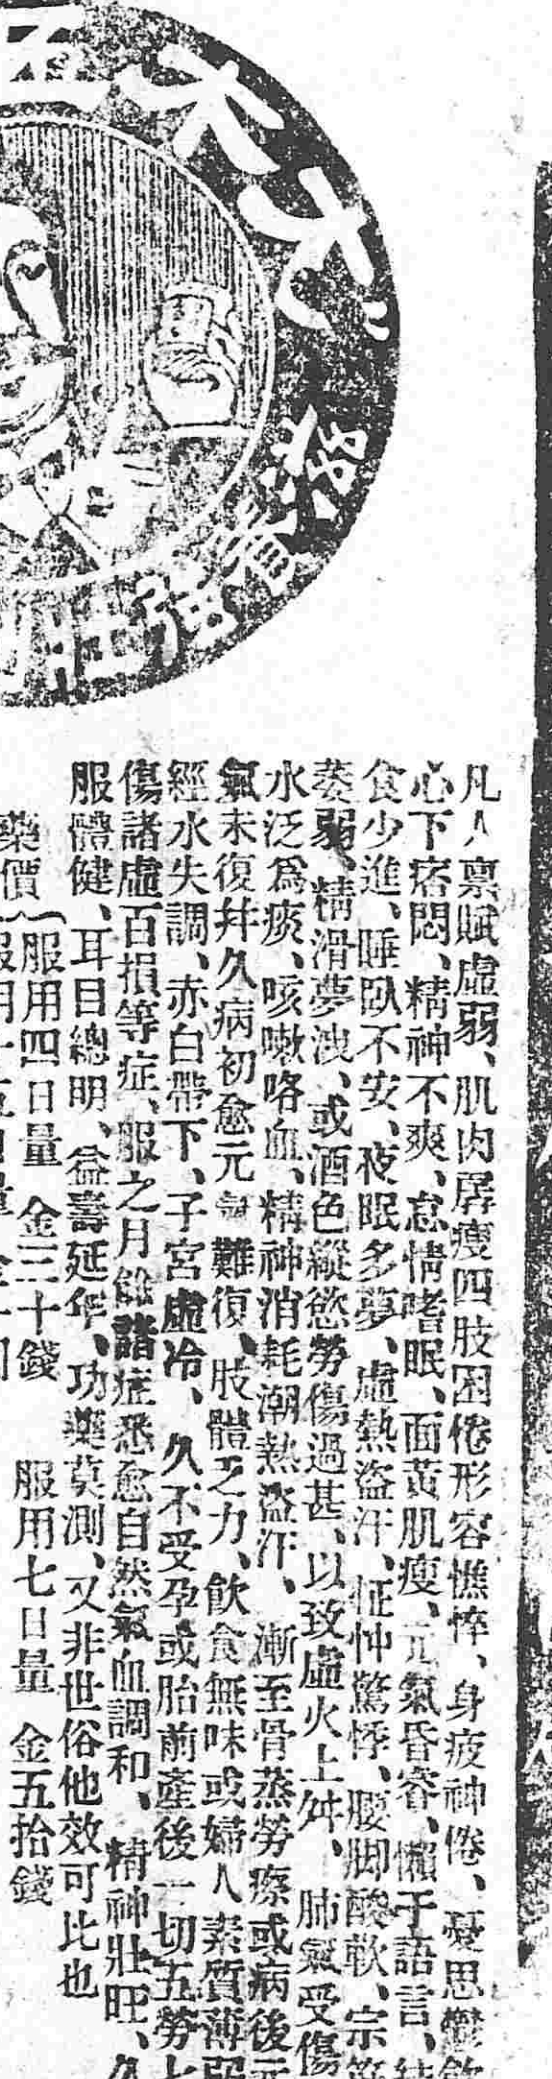 大
發賣
強壯
凡人禀賦虛弱、肌肉孱瘦四肢困倦形容憔悴、身疲神倦、憂思鬱
心下痞悶、精神不爽、怠惰嗜眠、面黃肌瘦、元氣昏 、懶于語言、
食少進、睡臥不安、夜眠多夢、虛熱盜汗、怔忡驚悸、腰脚酸軟、宗筋
萎弱、精滑夢洩、或酒色縱慾勞傷過甚、以致虛火上 、肺氣受傷
水泛爲痰、咳嗽咯血、精神消耗潮熱盜汗、漸至骨蒸勞瘵或病後元
氣未復幷久病初愈元氣難復、肢體乏力、飲食無味或婦人素質薄弱
經水失調、赤白帶下、子宮虛冷、久不受孕或胎前產後一切五勞七
傷諸虛百損等症、服之月餘諸症悉愈自然氣血調和、精神壯旺、久
服體健、耳目總明、益壽延年、功藥莫測、又非世俗他效可比也
藥價 服用四日量 金三十錢 服用七日量 金五拾錢